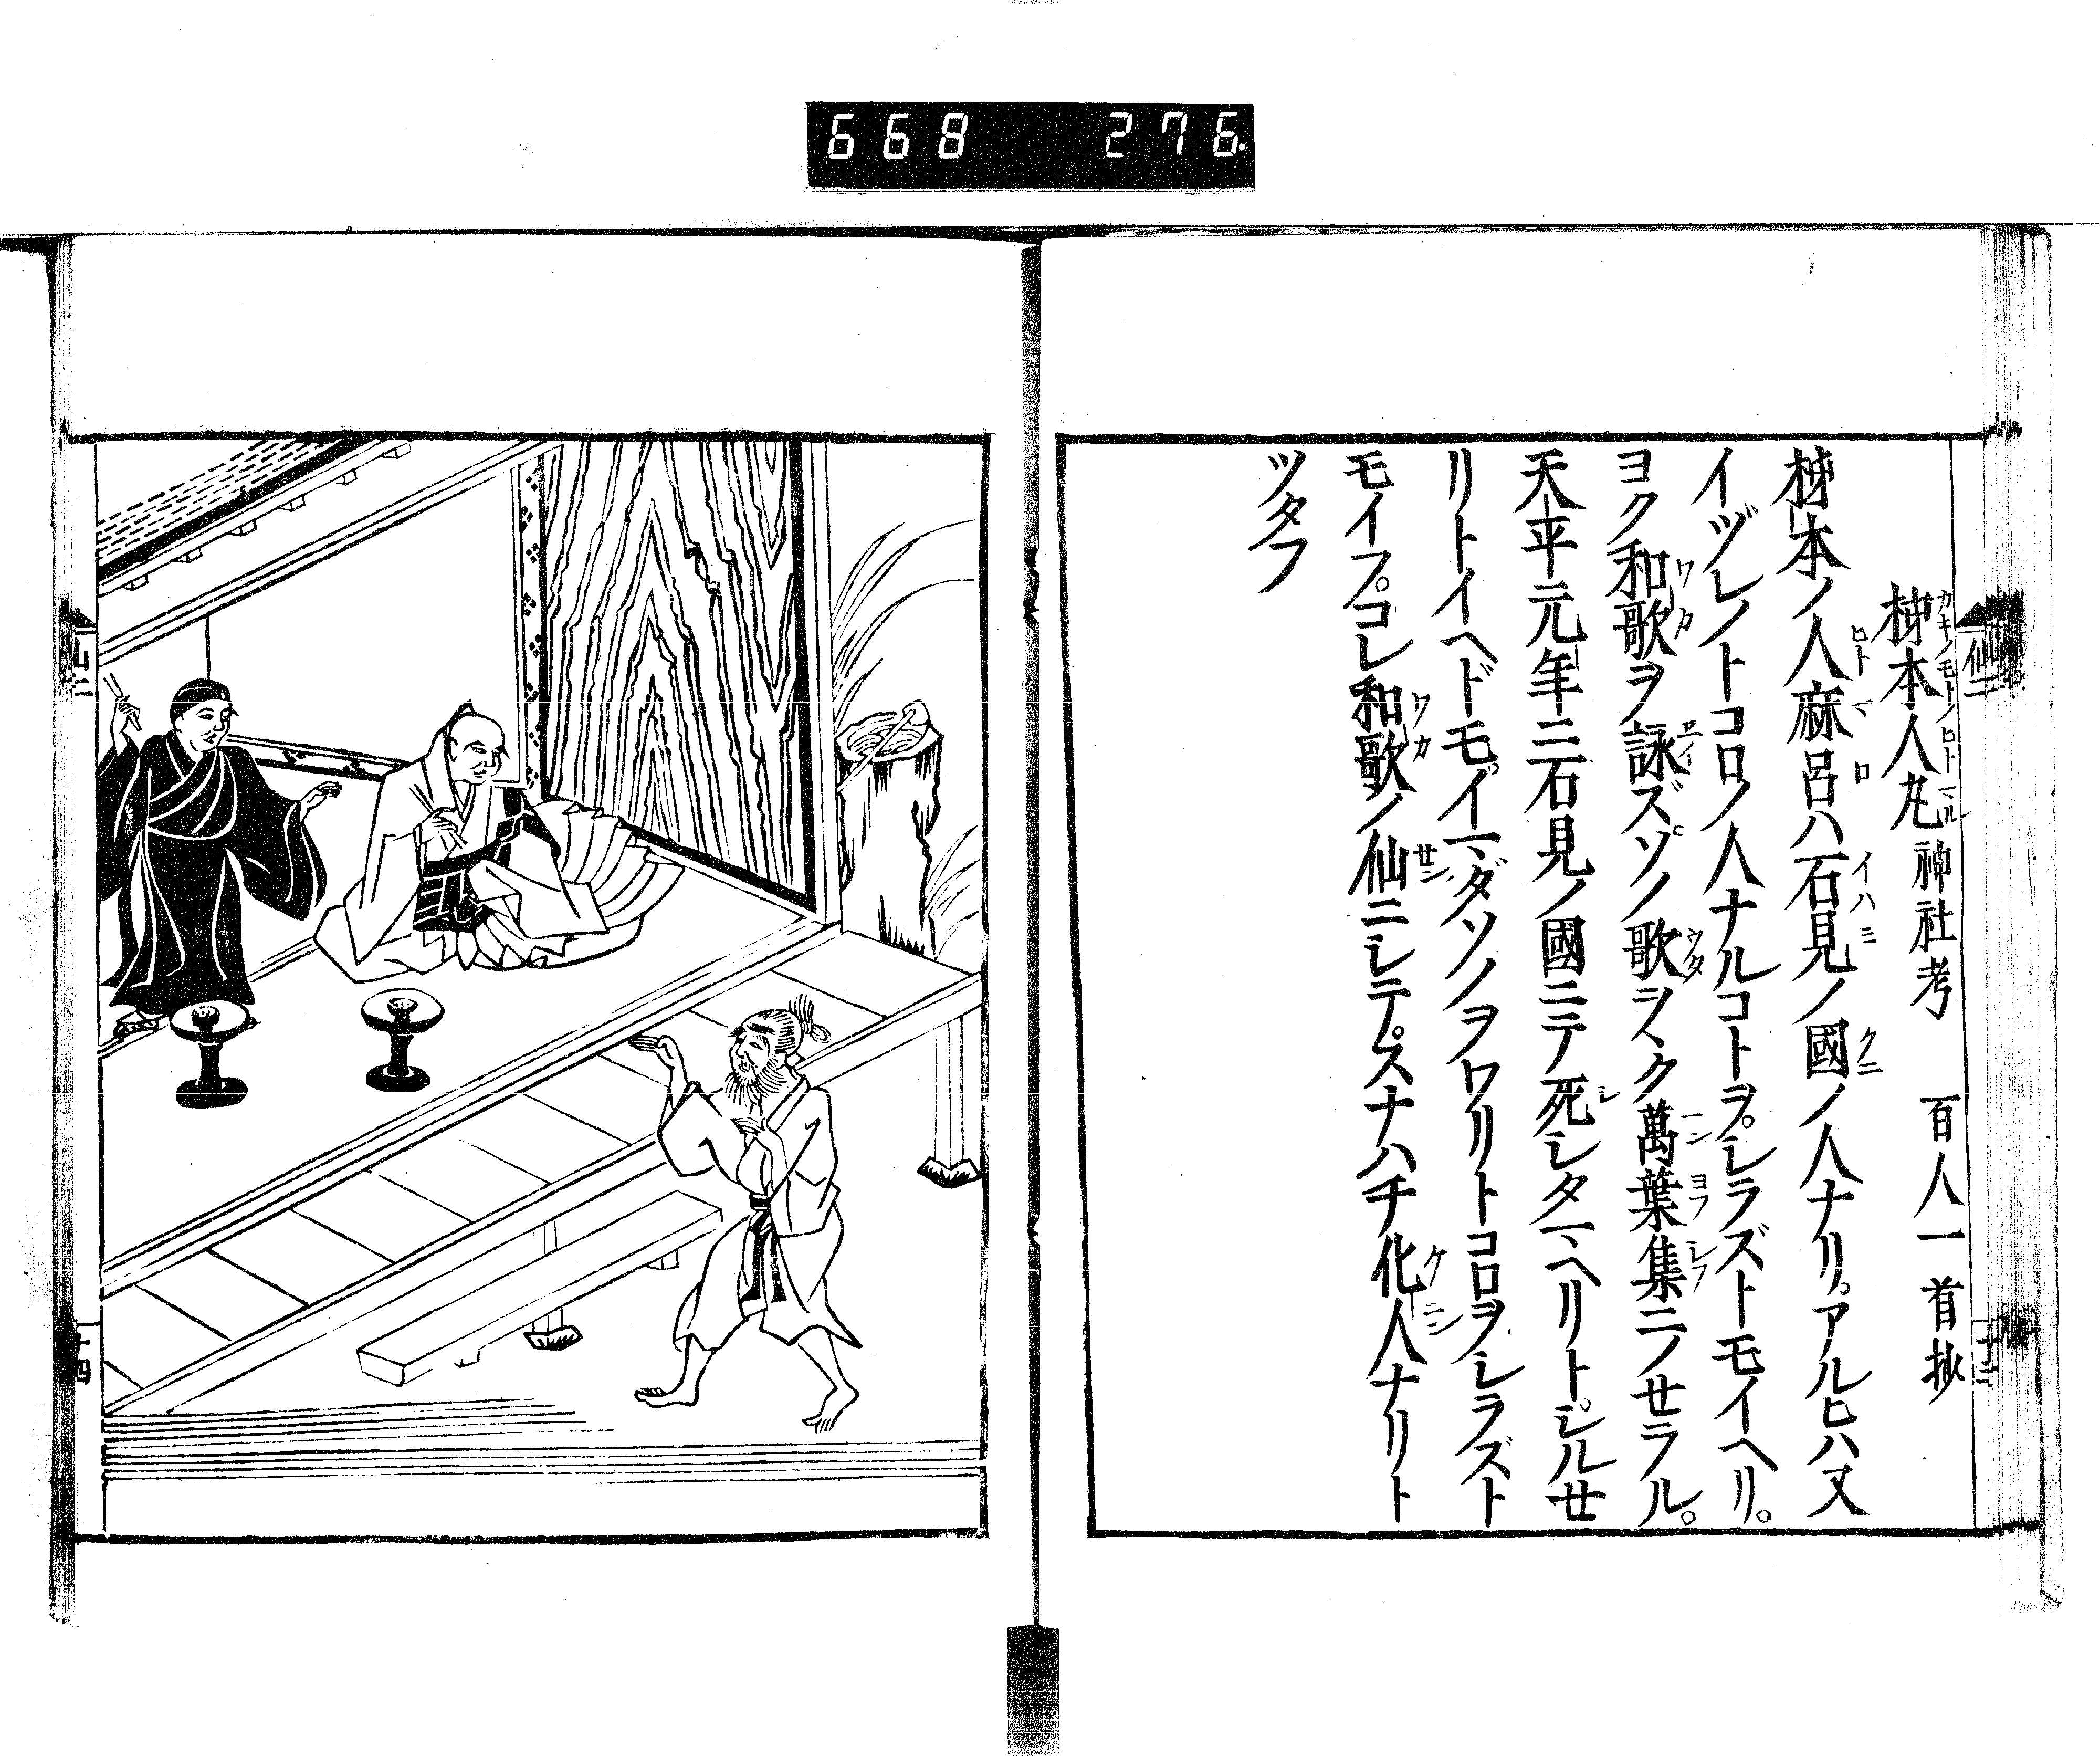 668 276
柹本人丸 神社考 百人一首抄
柹本ノ人麻呂ハ石見ノ國ノ人ナリ。アルヒハ又
イヅレノトコロノ人ナルコトヲ。シラズトモイヘリ。
ヨク和歌ヲ詠ズ。ソノ歌ヲヽク萬葉集ニノセラル。
天平元年ニ石見ノ國ニテ死シタマヘリト。シルセ
リトイヘドモ。イマダソノヲワリトコロヲシラズト
モイフ。コレ和歌ノ仙ニシテ。スナハチ化人ナリト
ツタフ
仙二
十三
十四